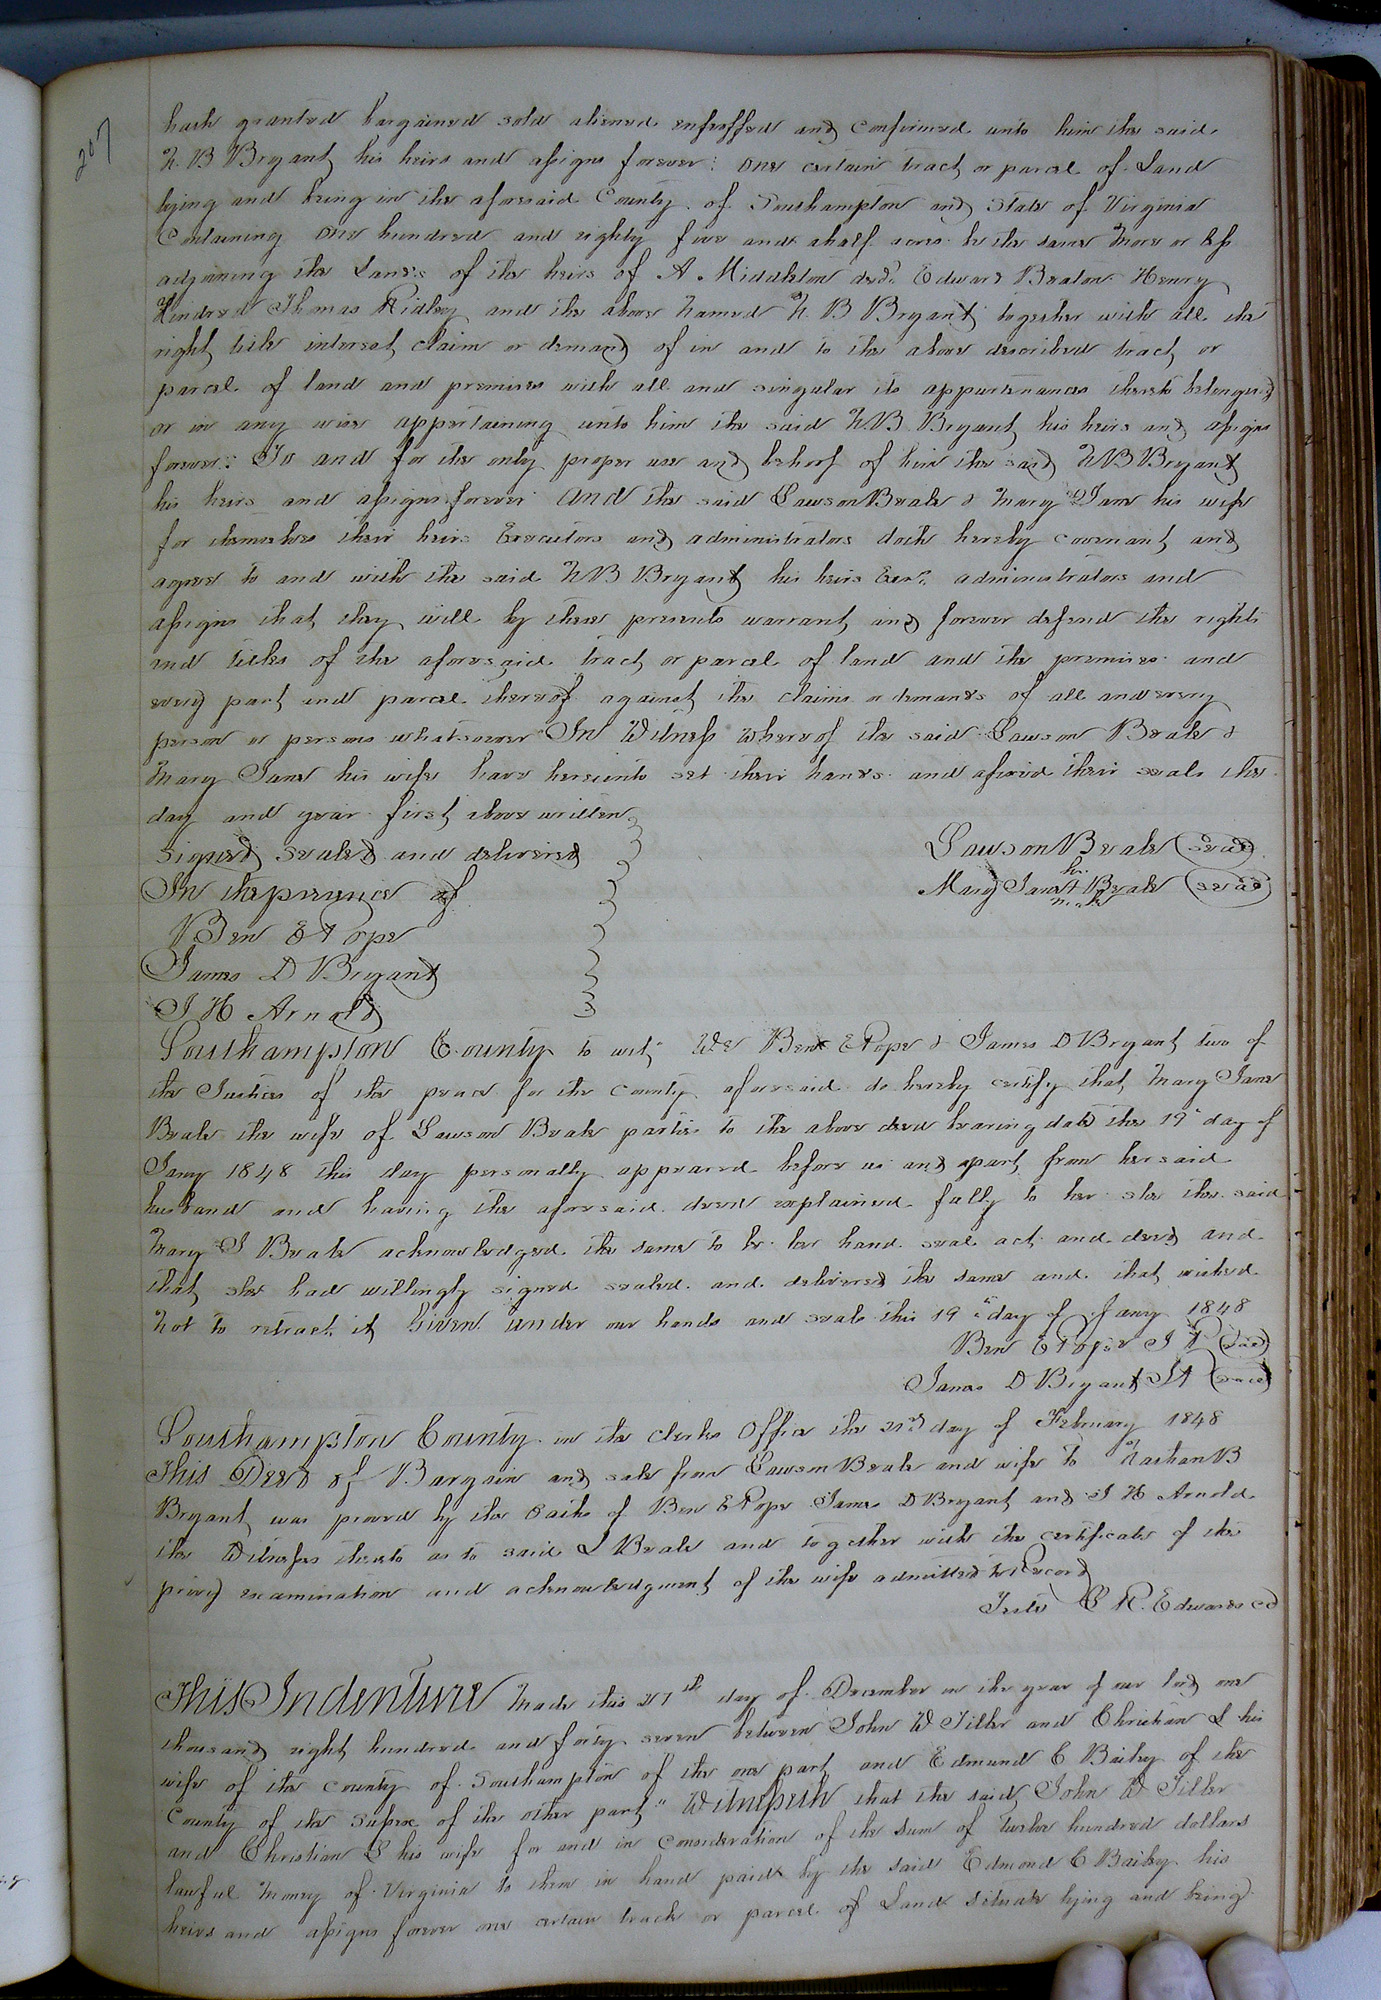 207
hath granted bargained sold aliened enfeoffed and confirmed unto him the said
N. B Bryant his heirs and assigns forever: one certain tract or parcel of Land
lying and being in the aforesaid County of Southampton and State of Virginia
Containing one hundred and eighty five and a half acres be the same more or less
adjoining the Lands of the heirs of A. Middleton decd. Edward Beaton Henry
Kindred Thomas Ridley and the above named N. B Bryant together with all the
right title interest claim or demand of in and to the above described tract or
parcel of land and premises with all and singular its appurtenances thereto belonging
or in any wise appertaining unto him the said N. B. Bryant his heirs and assigns
forever: To and for the only proper use and behoof of him the said N B Bryant
his heirs and assigns forever And the said Lawson Beale & Mary Jane his wife
for themselves their heirs Executors and administrators doth hereby covenant and
agree to and with the said N B Bryant his heirs Exors. administrators and
assigns that they will by these presents warrant and forever defend the right
and titles of the aforesaid tract or parcel of land and the premises and
every part and parcel thereof against the claims or demands of all and every
person or persons whatsoever In Witness whereof the said Lawson Beale &
Mary Jane his wife have hereunto set their hands and affixed their seals the
day and year first above written
Signed sealed and delivered
In the presence of
Ben E Pope
James D Bryant
J H Arnold
Lawson Beale (Seal)
her
Mary Jane + Beale (Seal)
mark
Southampton County to wit, We Ben E Pope & James D Bryant two of
the Justices of the peace for the County aforesaid do hereby certify that Mary Jane
Beale the wife of Lawson Beale parties to the above deed bearing date the 19th day of
Jany 1848 this day personally appeared before us and apart from her said
husband and having the aforesaid deed explained fully to her she the said
Mary J Beale acknowledged the same to be her hand seal act and deed and
that she had willingly signed sealed and delivered the same and that wished
not to retract it Given under our hands and seals this 19th day of Jany 1848
Ben E Pope J P (Seal)
James D Bryant J P (Seal)
Southampton County in the Clerks Office the day of February 1848
This Deed of Bargain and sale from Lawson Beale and wife to Nathan B
Bryant was proved by the oaths of Ben E Pope James D Bryant and J H Arnold
the Witnesses thereto as to said L Beale and together with the certificate of the
privy examination and acknowledgment of the wife admitted to Record
Teste L R. Edwards CC
This Indenture Made this 27th day of December in the year of our lord one
thousand eight hundred and forty seven between John W Tiller and Christian L his
wife of the County of Southampton of the one part and Edmund C Bailey of the
County of the Sussex of the other part" Witnesseth that the said John W Tiller
and Christian L his wife for and in Consideration of the sum of twelve hundred dollars
lawful money of Virginia to them in hand paid by the said Edmond C Bailey his
heirs and assigns forever one certain track or parcel of Land situate lying and being